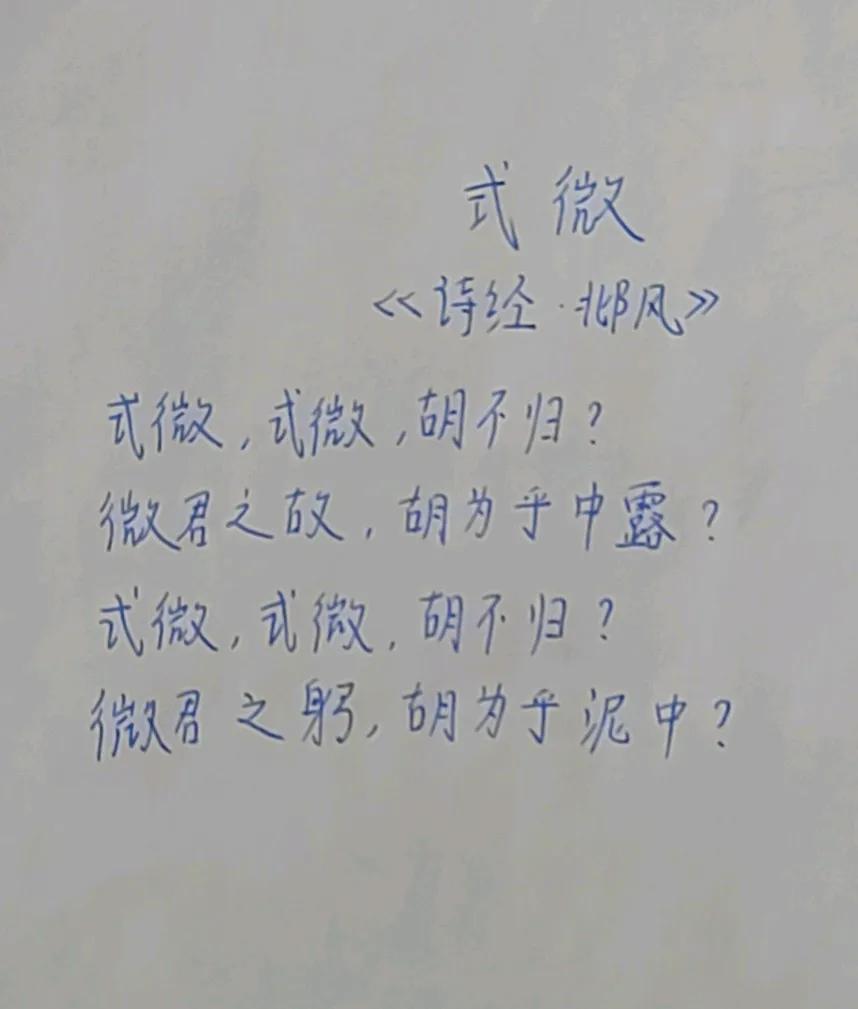 式微
《诗经·邶风》
式微,式微,胡不归?
微君之故,胡为乎中露?
式微,式微,胡不归?
微君之躬,胡为乎泥中?